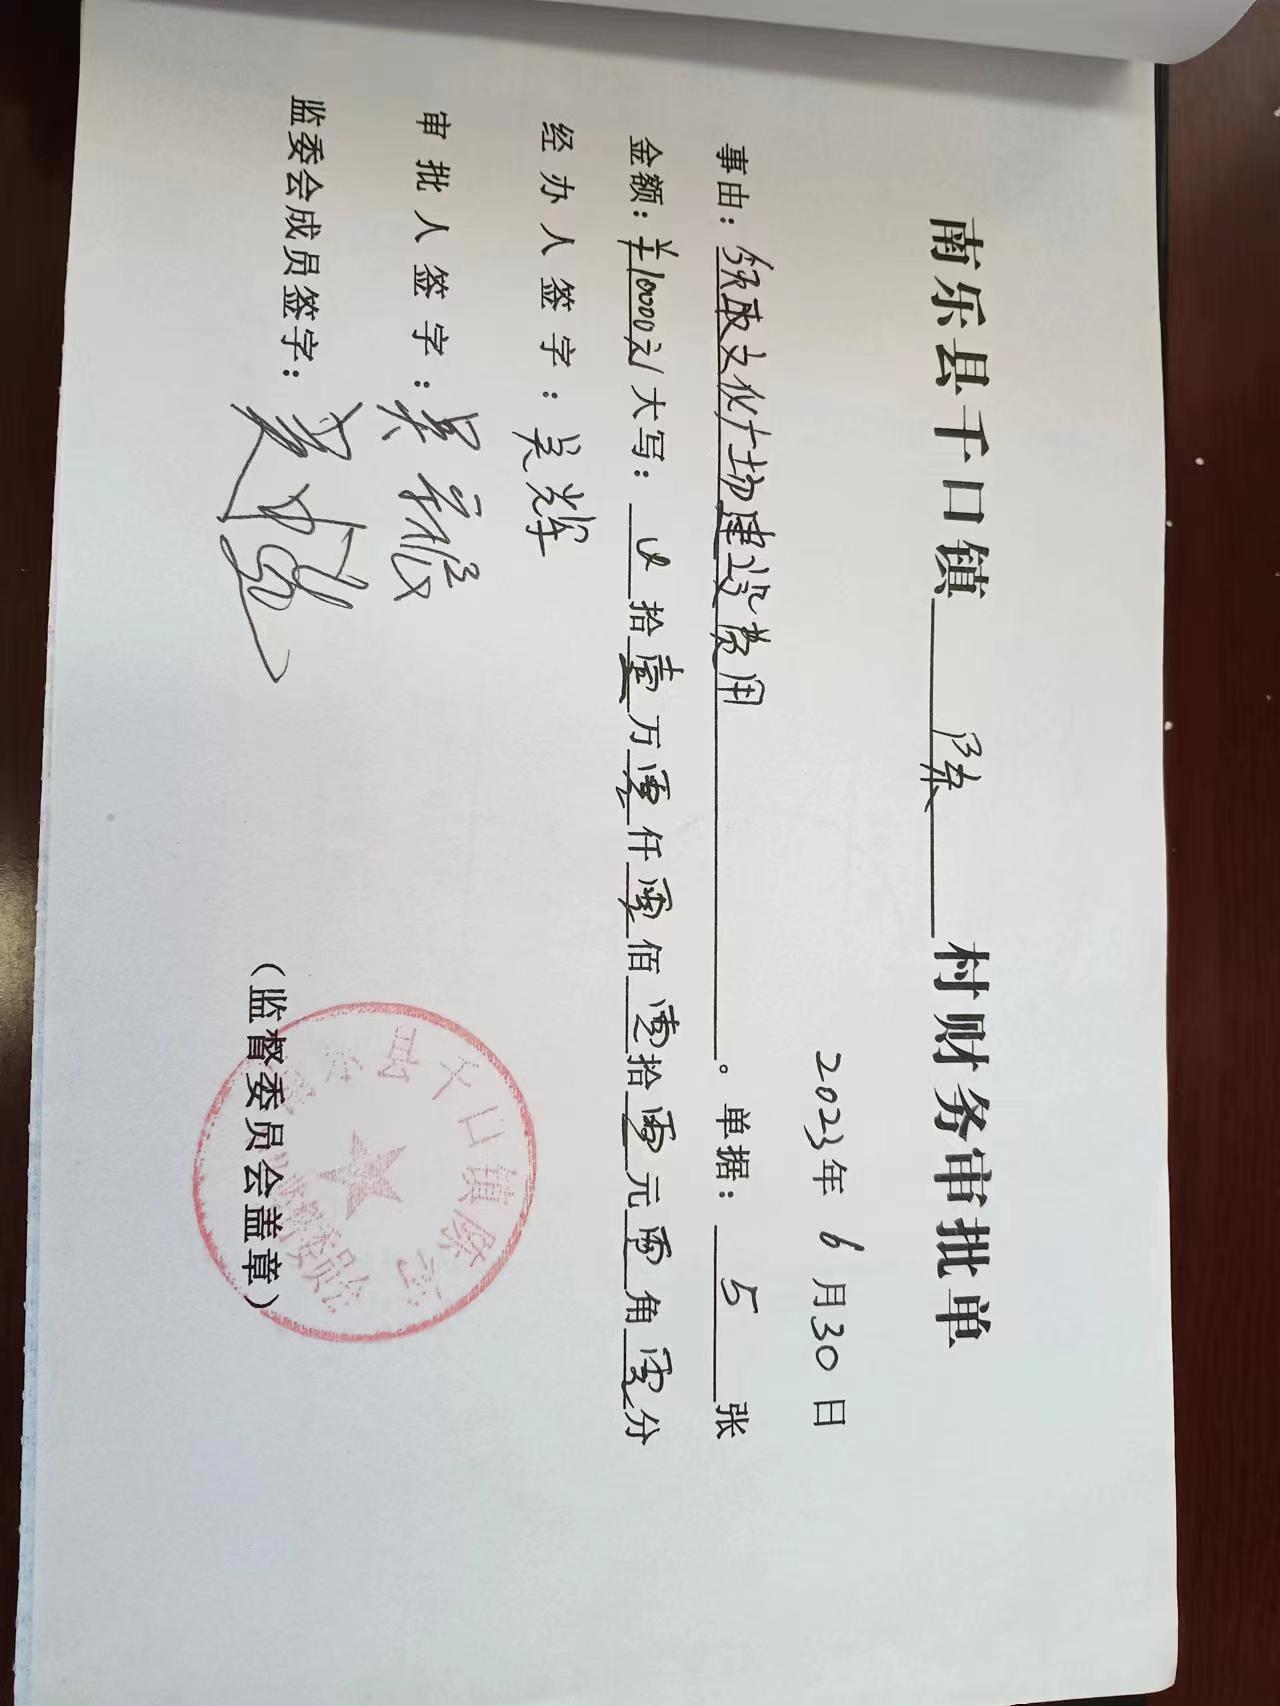 南乐县千口镇 陈 村财务审批单
2023年 6月30日
事由：领取文化广场建设费用。单据： 5 张
金额：￥10000元/大写： 拾壹万零仟零佰零拾零元零角零分
经办人签字：吴辉
审批人签字：吴
监委会成员签字：
（监督委员会盖章）
县千口镇陈
委员会